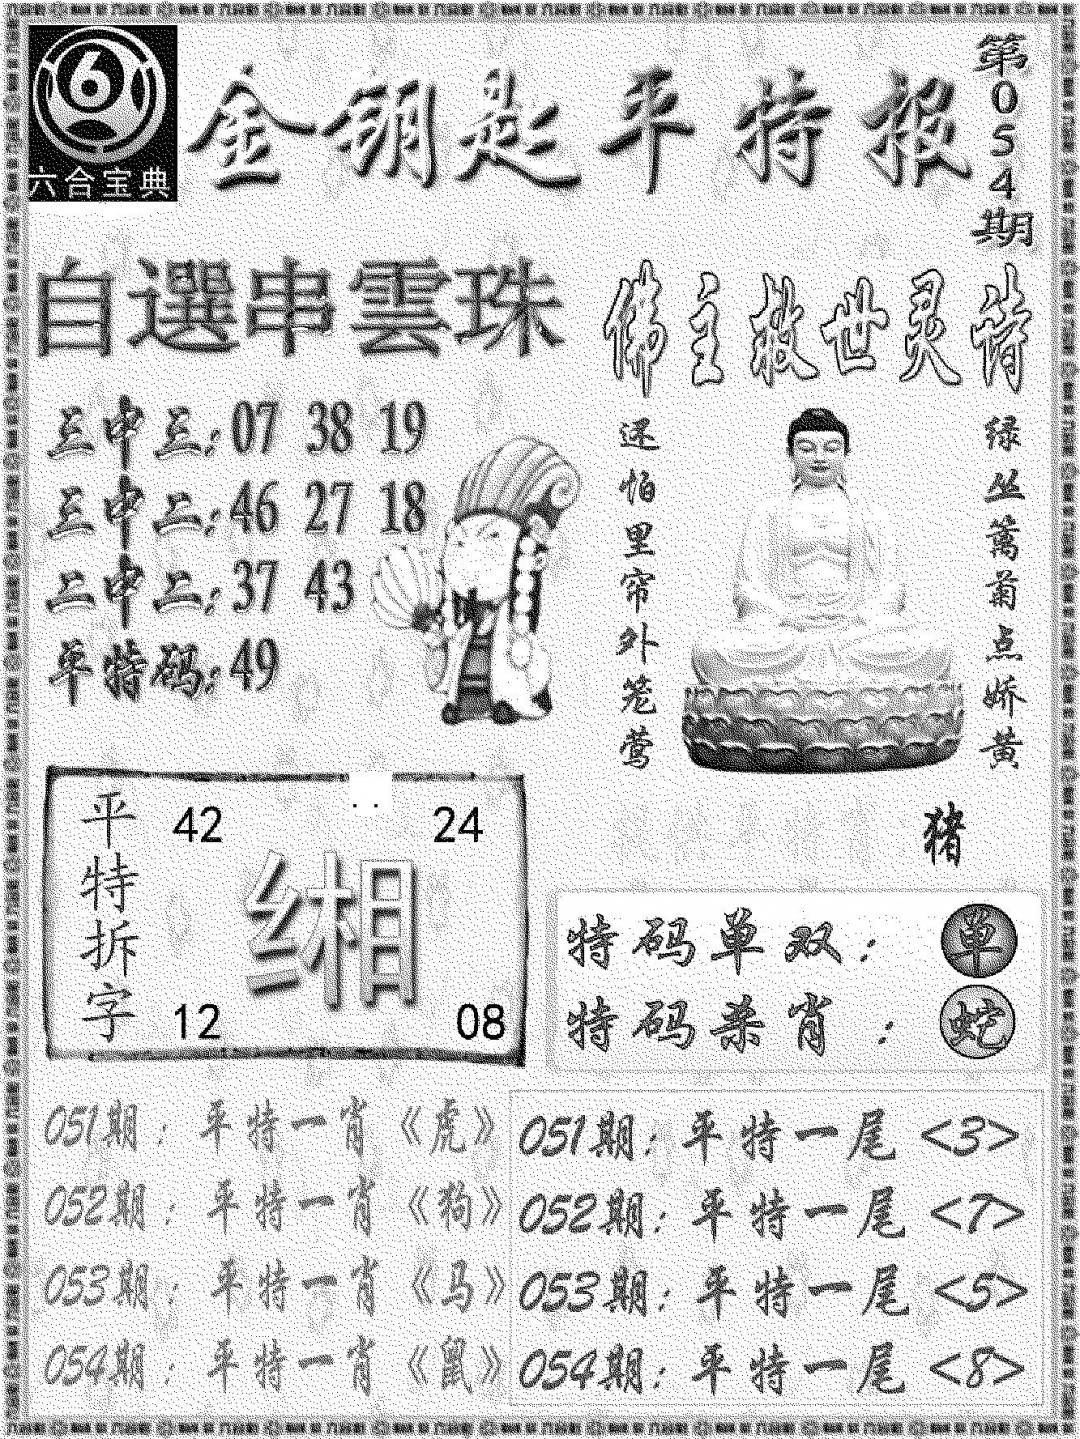 六合宝典
金钥匙平特报
第054期
自選串雲珠
三中三:07 38 19
三中二:46 27 18
二中二:37 43
平特码:49
佛主救世灵诗
绿丛篱菊点娇黄
还怕里帘外笼莺
猪
平特拆字
42
24
缃
12
08
特码单双: 单
特码杀肖: 蛇
051期:平特一肖《虎》
052期:平特一肖《狗》
053期:平特一肖《马》
054期:平特一肖《鼠》
051期:平特一尾<3>
052期:平特一尾<7>
053期:平特一尾<5>
054期:平特一尾<8>